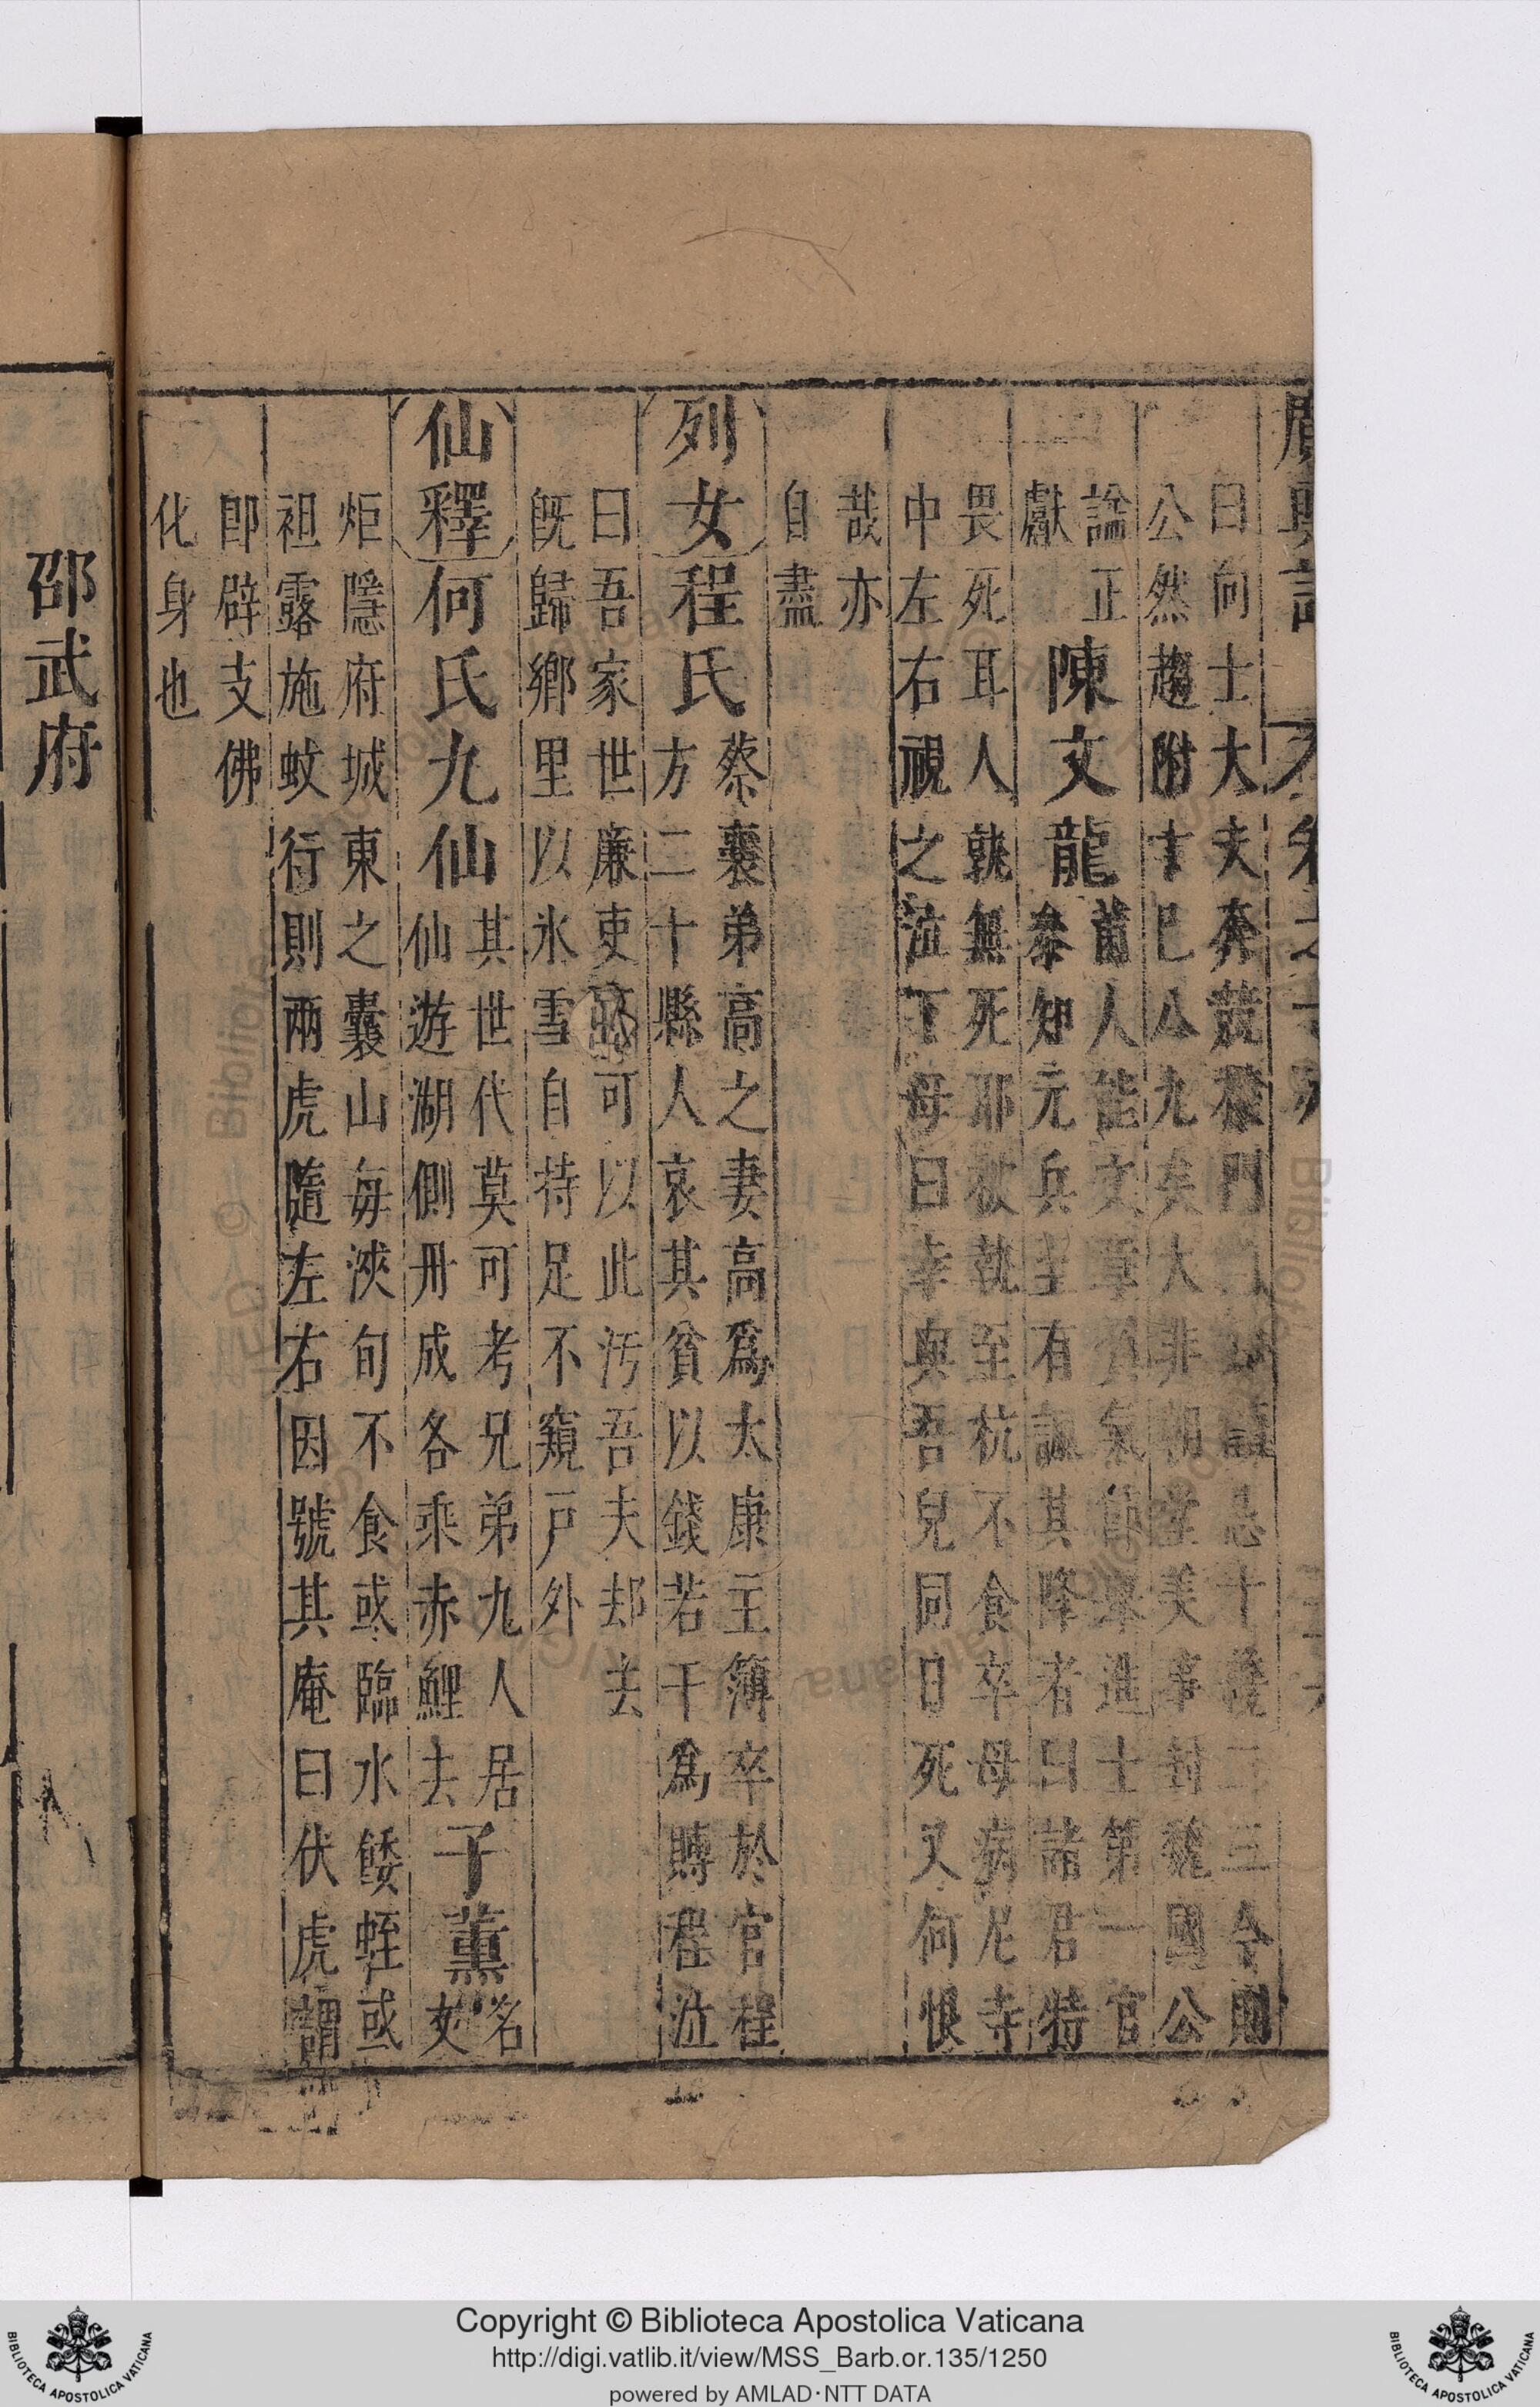 曰向士大夫奔競權門
忌十幾二三今則
公然趨附
已八九矣大非朝堂美事封魏國公
論正
獻
陳文龍
莆人能文章負氣節舉進士第一官
參知元兵至有諷其降者曰諸君特
畏死耳人孰無死耶被執至杭不食卒母病尼寺
中左右視之泣下母曰幸與吾兒同日死又何恨
哉亦
自盡
列女
程氏
蔡襄弟高之妻高爲太康主簿卒於官程
方二十縣人哀其貧以錢若干爲賻程泣
曰吾家世廉吏
可以此汚吾夫却去
旣歸鄉里以氷雪自持足不窺戸外
仙釋
何氏九仙
其世代莫可考兄弟九人居
仙遊湖側丹成各乘赤鯉去
子薰
名
女
炬隱府城東之囊山每浹旬不食或臨水餧蛭或
袒露施蚊行則兩虎隨左右因號其庵曰伏虎謂
卽辟支佛
化身也
邵武府